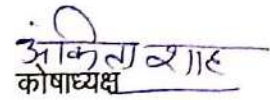 अंकिता शाह
कोषाध्यक्ष